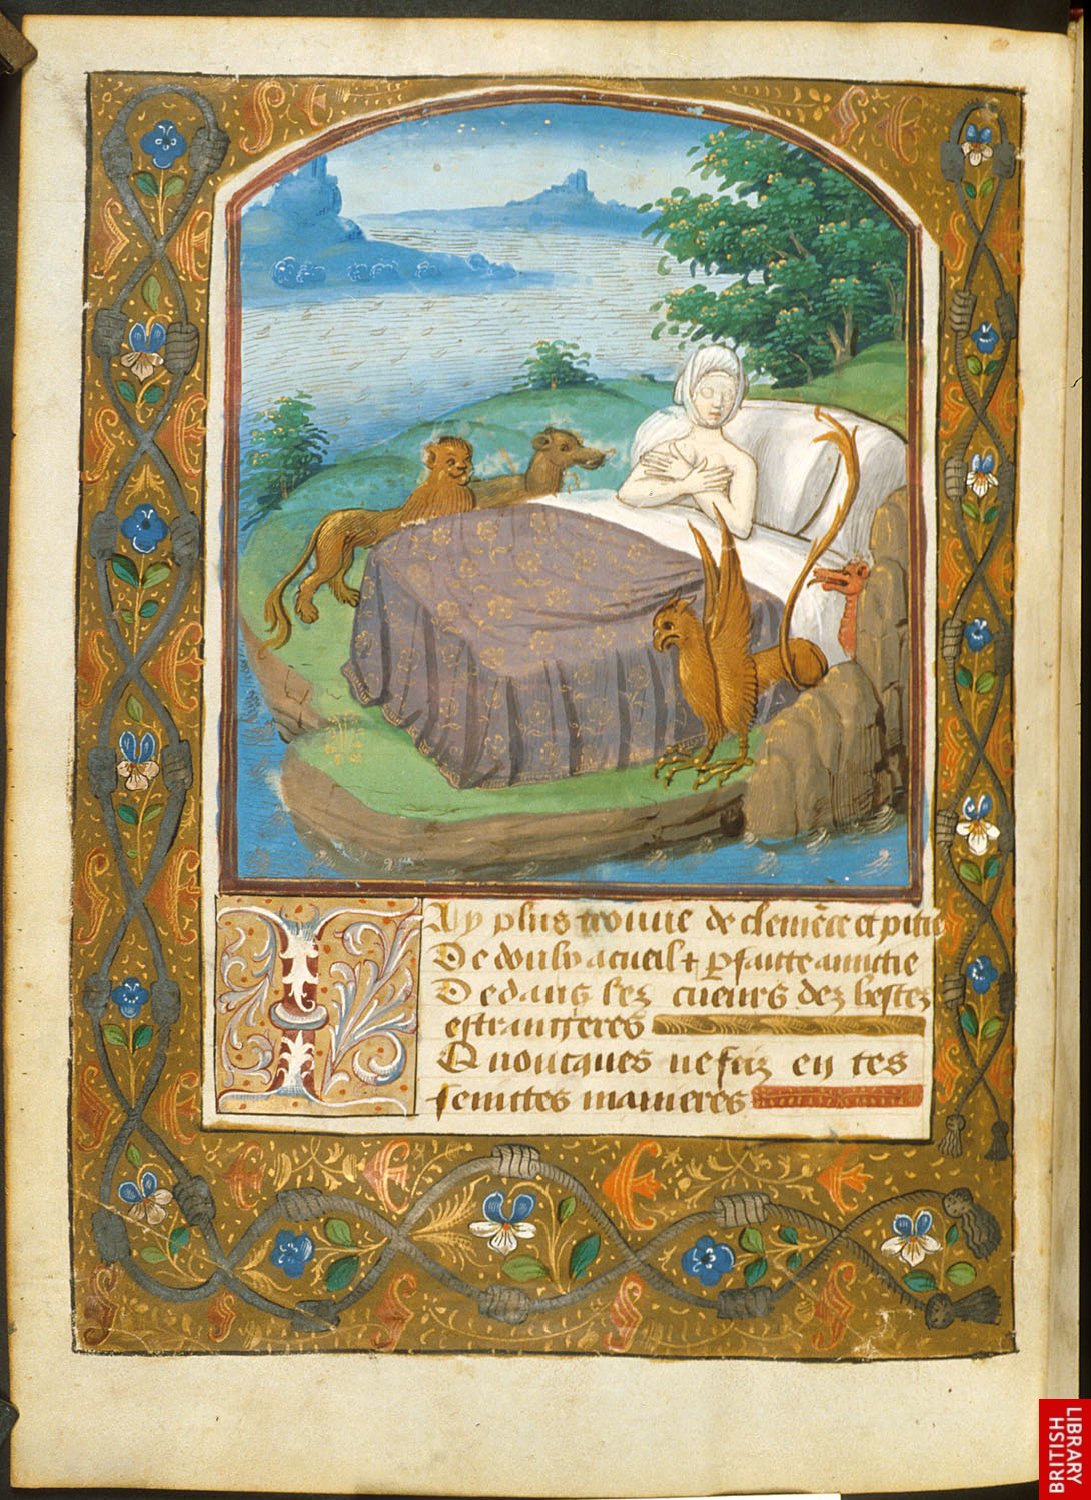 I Ay plus trouve de clemēce et pitie
De doulx acueil & pfaitte amittie
Dedans les cueurs des bestes
estrangeres
Quoncques ne fiz en tes
faintes manieres
BRITISH
LIBRARY